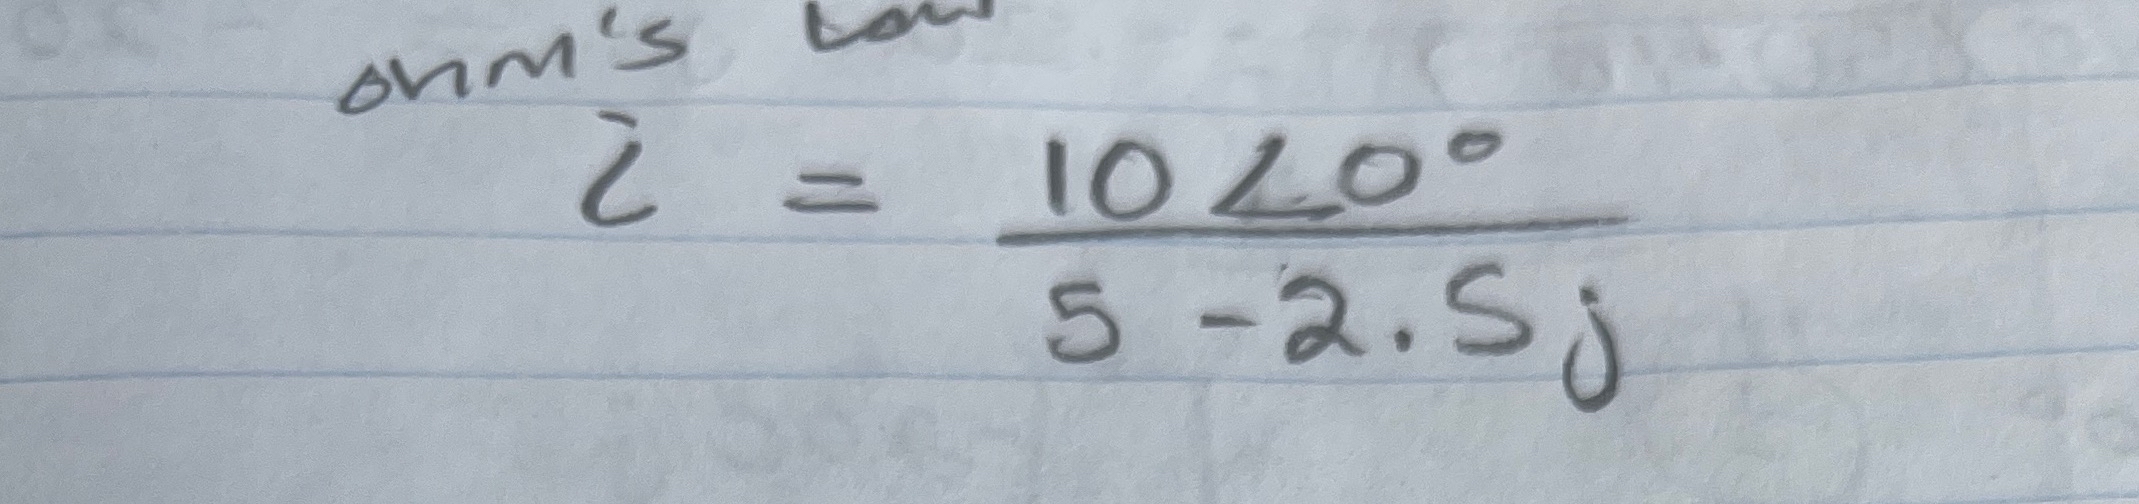 ohm's law
i = 10∠0°
5 - 2.5j